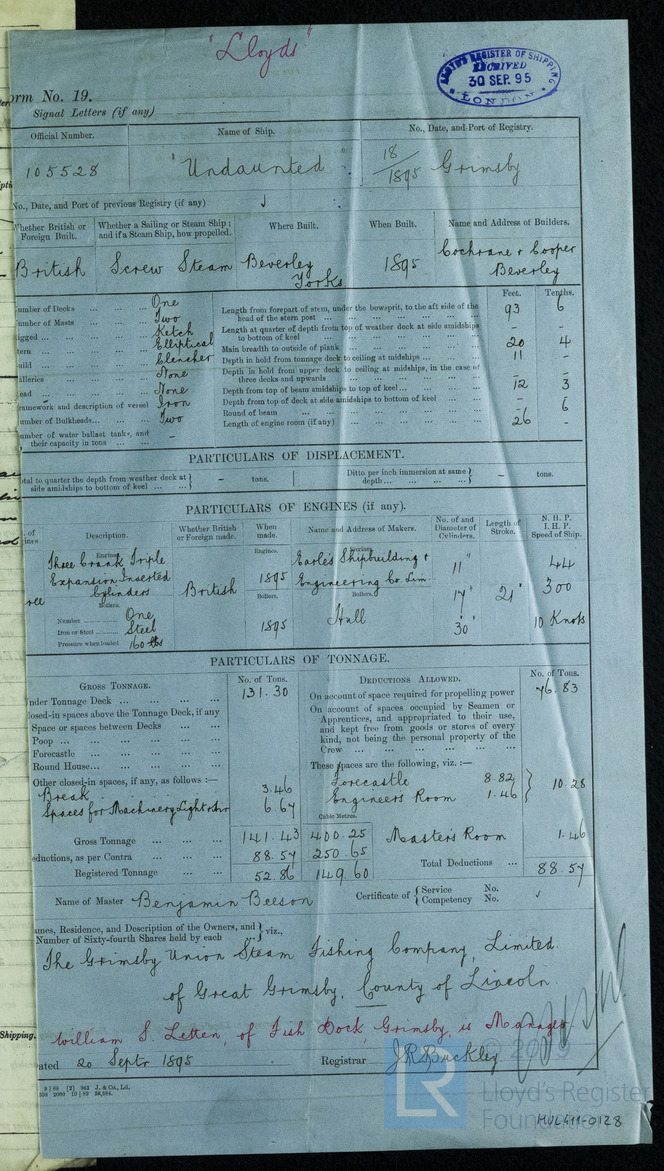 "Lloyds"
LLOYD'S REGISTER OF SHIPPING
RECEIVED
30 SEP. 95
LONDON
orm No. 19.
Signal Letters (if any)
Official Number.
Name of Ship.
No., Date, and Port of Registry.
105528
"Undaunted"
18/1895 Grimsby
No., Date, and Port of previous Registry (if any)
Whether British or Foreign Built.
Whether a Sailing or Steam Ship; and if a Steam Ship, how propelled.
Where Built.
When Built.
Name and Address of Builders.
British
Screw Steam
Beverley Yorks
1895
Cochrane & Cooper Beverley
Feet. Tenths.
umber of Decks One
umber of Masts Two
igged Ketch
tern Elliptical
uild Clencher
alleries None
ead None
ramework and description of vessel Iron
umber of Bulkheads Two
umber of water ballast tanks, and their capacity in tons –
Length from forepart of stem, under the bowsprit, to the aft side of the head of the stern post 93 6
Length at quarter of depth from top of weather deck at side amidships to bottom of keel – –
Main breadth to outside of plank 20 4
Depth in hold from tonnage deck to ceiling at midships 11 –
Depth in hold from upper deck to ceiling at midships, in the case of three decks and upwards – –
Depth from top of beam amidships to top of keel 12 3
Depth from top of deck at side amidships to bottom of keel – –
Round of beam – 6
Length of engine room (if any) 26 –
PARTICULARS OF DISPLACEMENT.
otal to quarter the depth from weather deck at side amidships to bottom of keel – tons.
Ditto per inch immersion at same depth – tons.
PARTICULARS OF ENGINES (if any).
of
ines.
Description.
Whether British or Foreign made.
When made.
Name and Address of Makers.
No. of and Diameter of Cylinders.
Length of Stroke.
N. H. P.
I. H. P.
Speed of Ship.
ree
Engines.
Three Crank Triple
Expansion Inverted
Cylinders
Boilers.
Number One
Iron or Steel Steel
Pressure when loaded 160 lbs
British
Engines.
1895
Boilers.
1895
Engines.
Earle's Shipbuilding &
Engineering Co. Lim.
Boilers.
Hull
11"
17"
30"
21"
44
300
10 Knots
PARTICULARS OF TONNAGE.
GROSS TONNAGE.
No. of Tons.
nder Tonnage Deck 131.30
losed-in spaces above the Tonnage Deck, if any
Space or spaces between Decks
Poop
Forecastle
Round House
Other closed-in spaces, if any, as follows :—
Break 3.46
Spaces for Machinery Light & Air 6.67
Gross Tonnage 141.43
eductions, as per Contra 88.57
Registered Tonnage 52.86
Cubic Metres.
400.25
250.65
149.60
DEDUCTIONS ALLOWED.
No. of Tons.
On account of space required for propelling power 76.83
On account of spaces occupied by Seamen or Apprentices, and appropriated to their use, and kept free from goods or stores of every kind, not being the personal property of the Crew
These spaces are the following, viz. :—
Forecastle 8.82
Engineers Room 1.46
10.28
Master's Room 1.46
Total Deductions 88.57
Name of Master Benjamin Beeson
Certificate of Service No.
Competency No.
ames, Residence, and Description of the Owners, and Number of Sixty-fourth Shares held by each viz.,
The Grimsby Union Steam Fishing Company, Limited.
of Great Grimsby, County of Lincoln.
William S. Letten, of Fish Dock, Grimsby, is Manager
ated 20 Septr 1895
Registrar J R Buckley
Shipping.
© 2019
LR
Lloyd's Register
Foundation
HUL411-0128